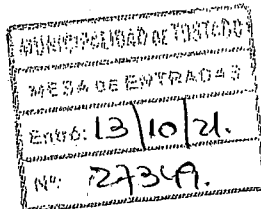 MUNICIPALIDAD DE TOSTADO
MESA DE ENTRADAS
Entró: 13/10/21.
Nº: 27349.